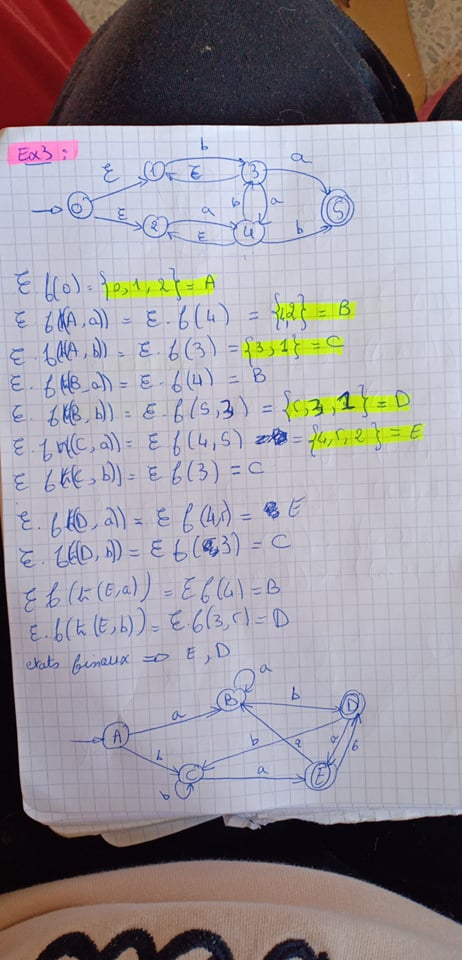 Ex3:
b
a
ε 1 ε 3
0 b a 5
ε 2 a 4 b
ε
ε f(0) = {0,1,2} = A
ε f(t(A,a)) = ε.f(4) = {4,2} = B
ε f(t(A,b)) = ε.f(3) = {3,1} = C
ε f(t(B,a)) = ε f(4) = B
ε f(t(B,b)) = ε f(5,3) = {5,3,1} = D
ε f(t(C,a)) = ε f(4,5) = {4,5,2} = E
ε f(t(C,b)) = ε f(3) = C
ε.f(t(D,a)) = ε f(4,5) = E
ε.f(t(D,b)) = ε f(3) = C
ε f(t(E,a)) = ε f(4) = B
ε.f(t(E,b)) = ε.f(3,5) = D
etats finaux => E, D
a
B b D
A a b a a b
b C a E
b